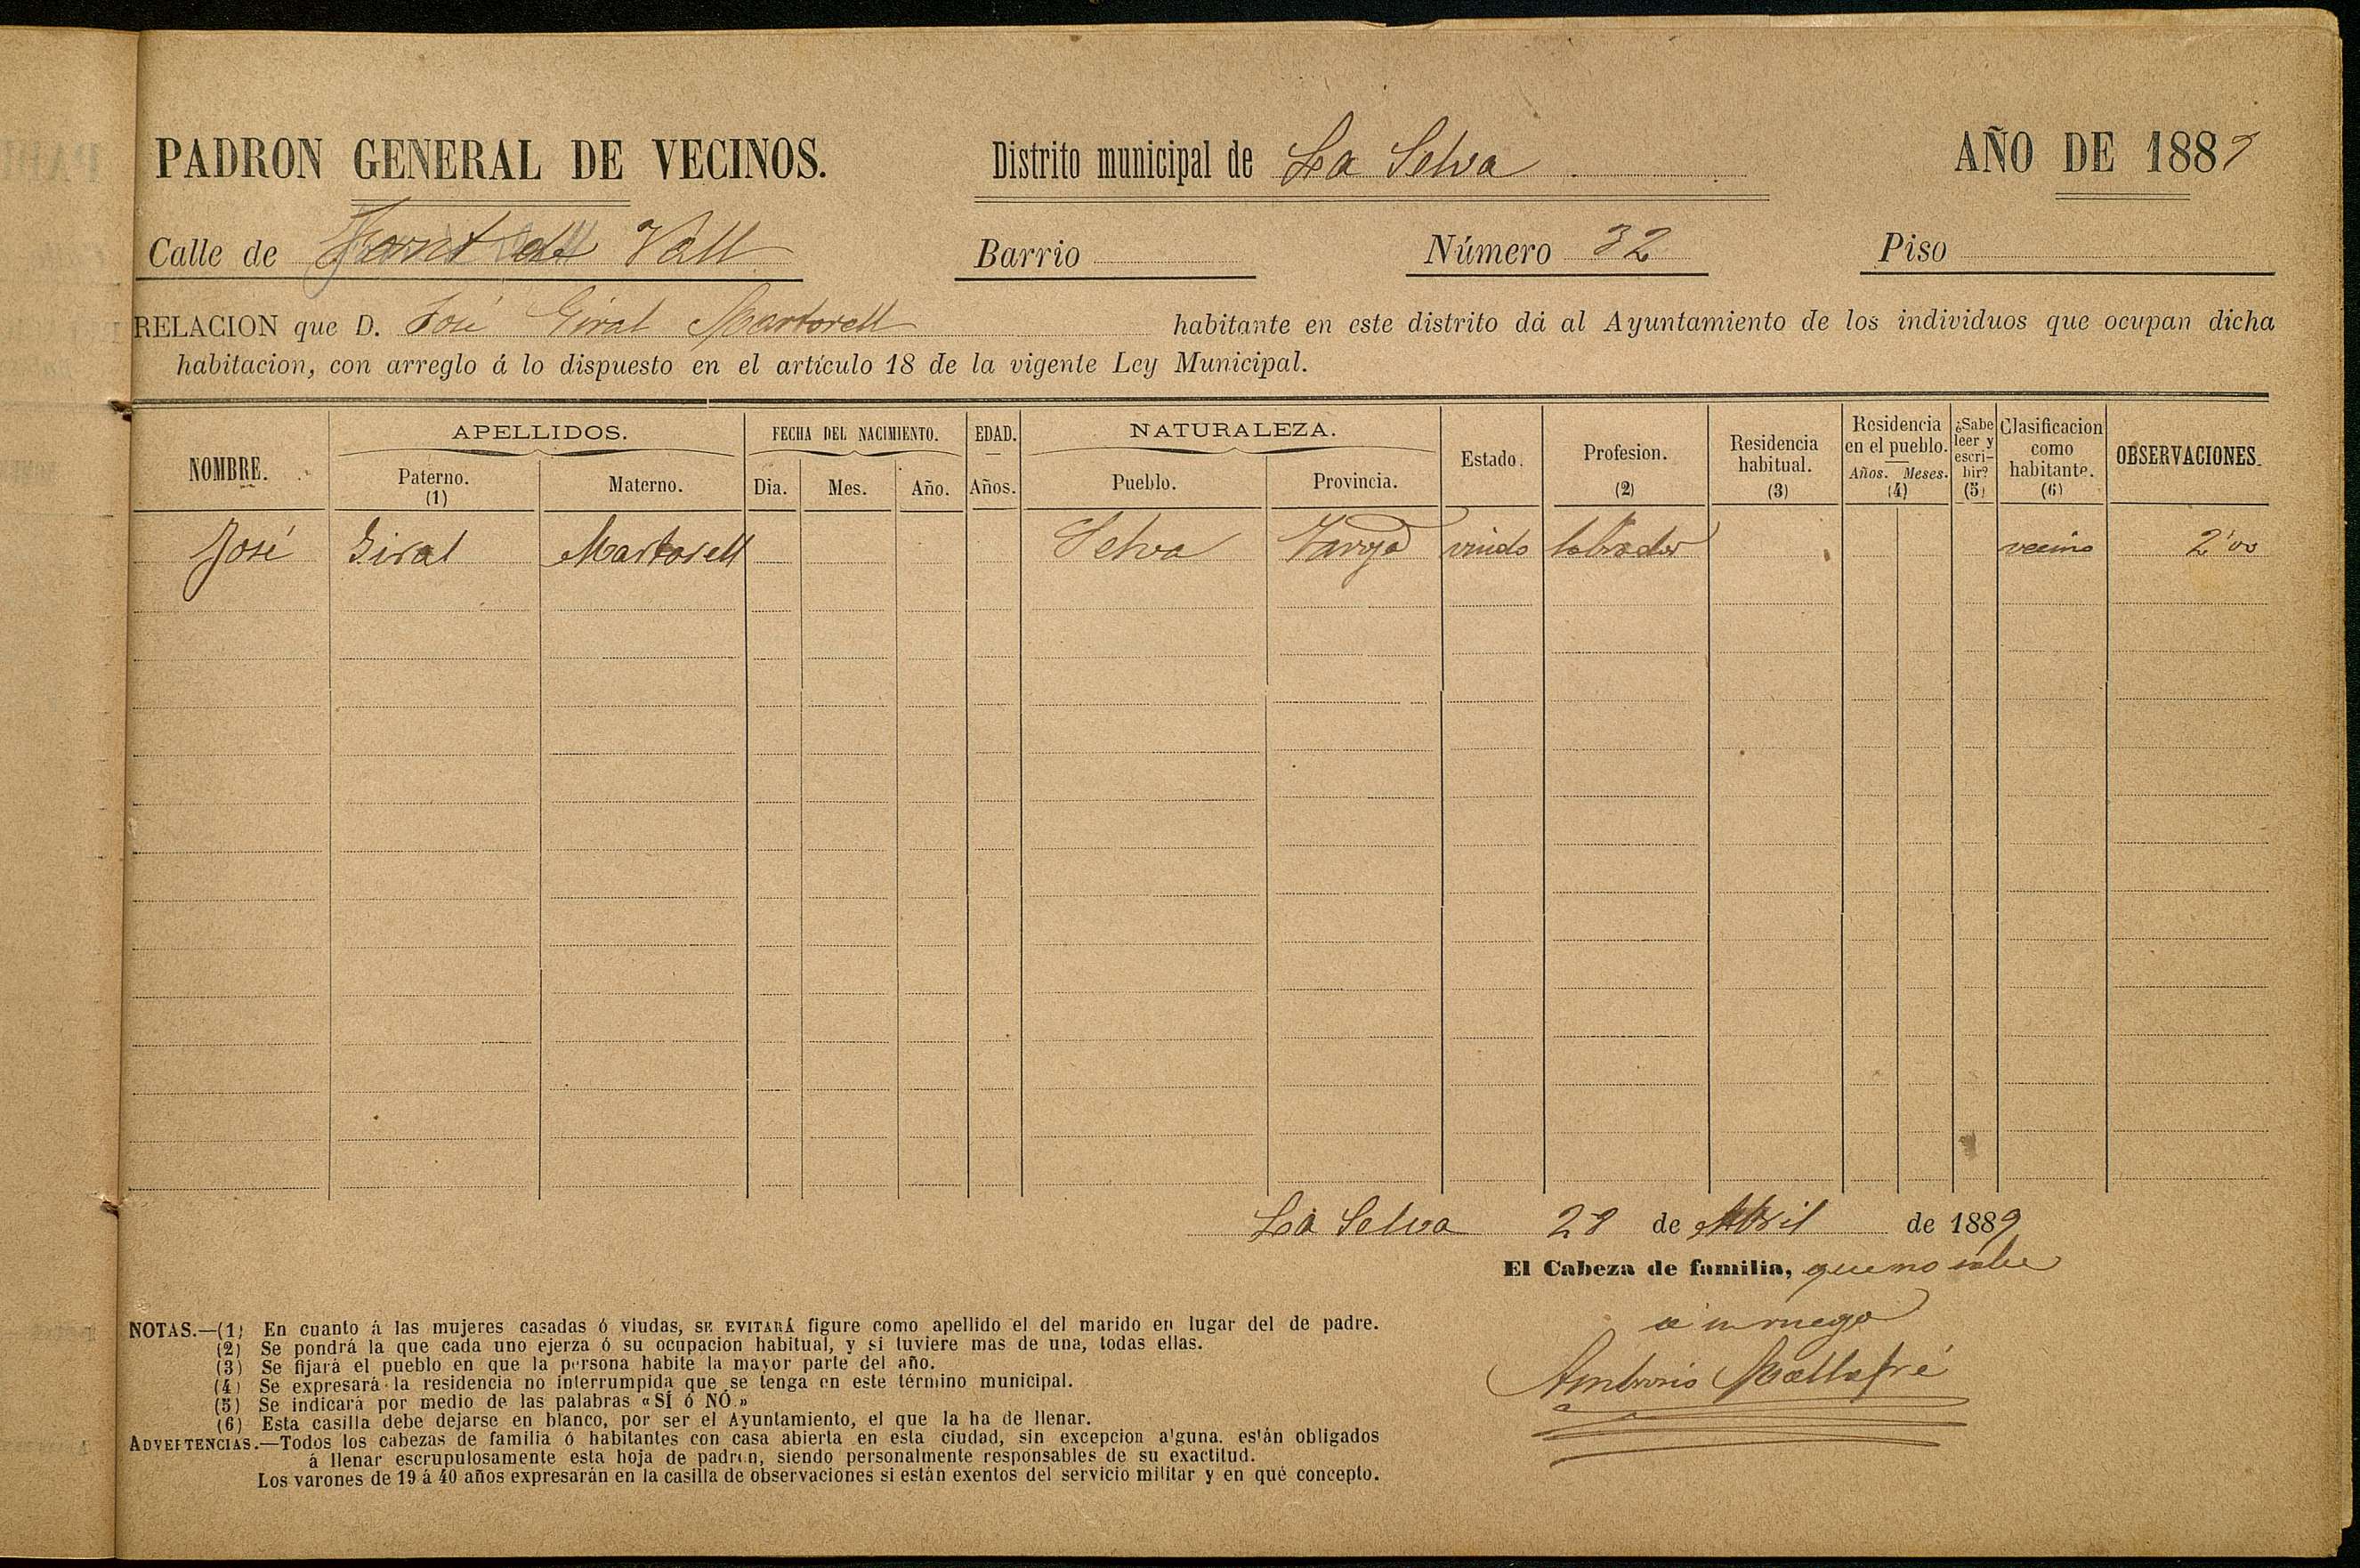 PADRON GENERAL DE VECINOS. Distrito municipal de La Selva AÑO DE 1889
Calle de Vall Barrio Número 32 Piso
RELACION que D. José Giral Martorell habitante en este distrito dá al Ayuntamiento de los individuos que ocupan dicha
habitacion, con arreglo á lo dispuesto en el artículo 18 de la vigente Ley Municipal.
NOMBRE. APELLIDOS. Paterno. (1) Materno. FECHA DEL NACIMIENTO. Dia. Mes. Año. EDAD. Años. NATURALEZA. Pueblo. Provincia. Estado. Profesion. (2) Residencia habitual. (3) Residencia en el pueblo. Años. Meses. (4) ¿Sabe leer y escribir? (5) Clasificacion como habitante. (6) OBSERVACIONES.
José Giral Martorell Selva Tarrga viudo labrador vecino 2'00
La Selva 28 de Abril de 1889
El Cabeza de familia, que no sabe
a su ruego
Ambrosio Mallafré
NOTAS.—(1) En cuanto á las mujeres casadas ó viudas, SE EVITARÁ figure como apellido el del marido en lugar del de padre.
(2) Se pondrá la que cada uno ejerza ó su ocupacion habitual, y si tuviere mas de una, todas ellas.
(3) Se fijará el pueblo en que la persona habite la mayor parte del año.
(4) Se expresará la residencia no interrumpida que se tenga en este término municipal.
(5) Se indicará por medio de las palabras «SÍ ó NÓ»
(6) Esta casilla debe dejarse en blanco, por ser el Ayuntamiento, el que la ha de llenar.
ADVERTENCIAS.—Todos los cabezas de familia ó habitantes con casa abierta en esta ciudad, sin excepcion alguna. están obligados
á llenar escrupulosamente esta hoja de padron, siendo personalmente responsables de su exactitud.
Los varones de 19 á 40 años expresarán en la casilla de observaciones si están exentos del servicio militar y en qué concepto.